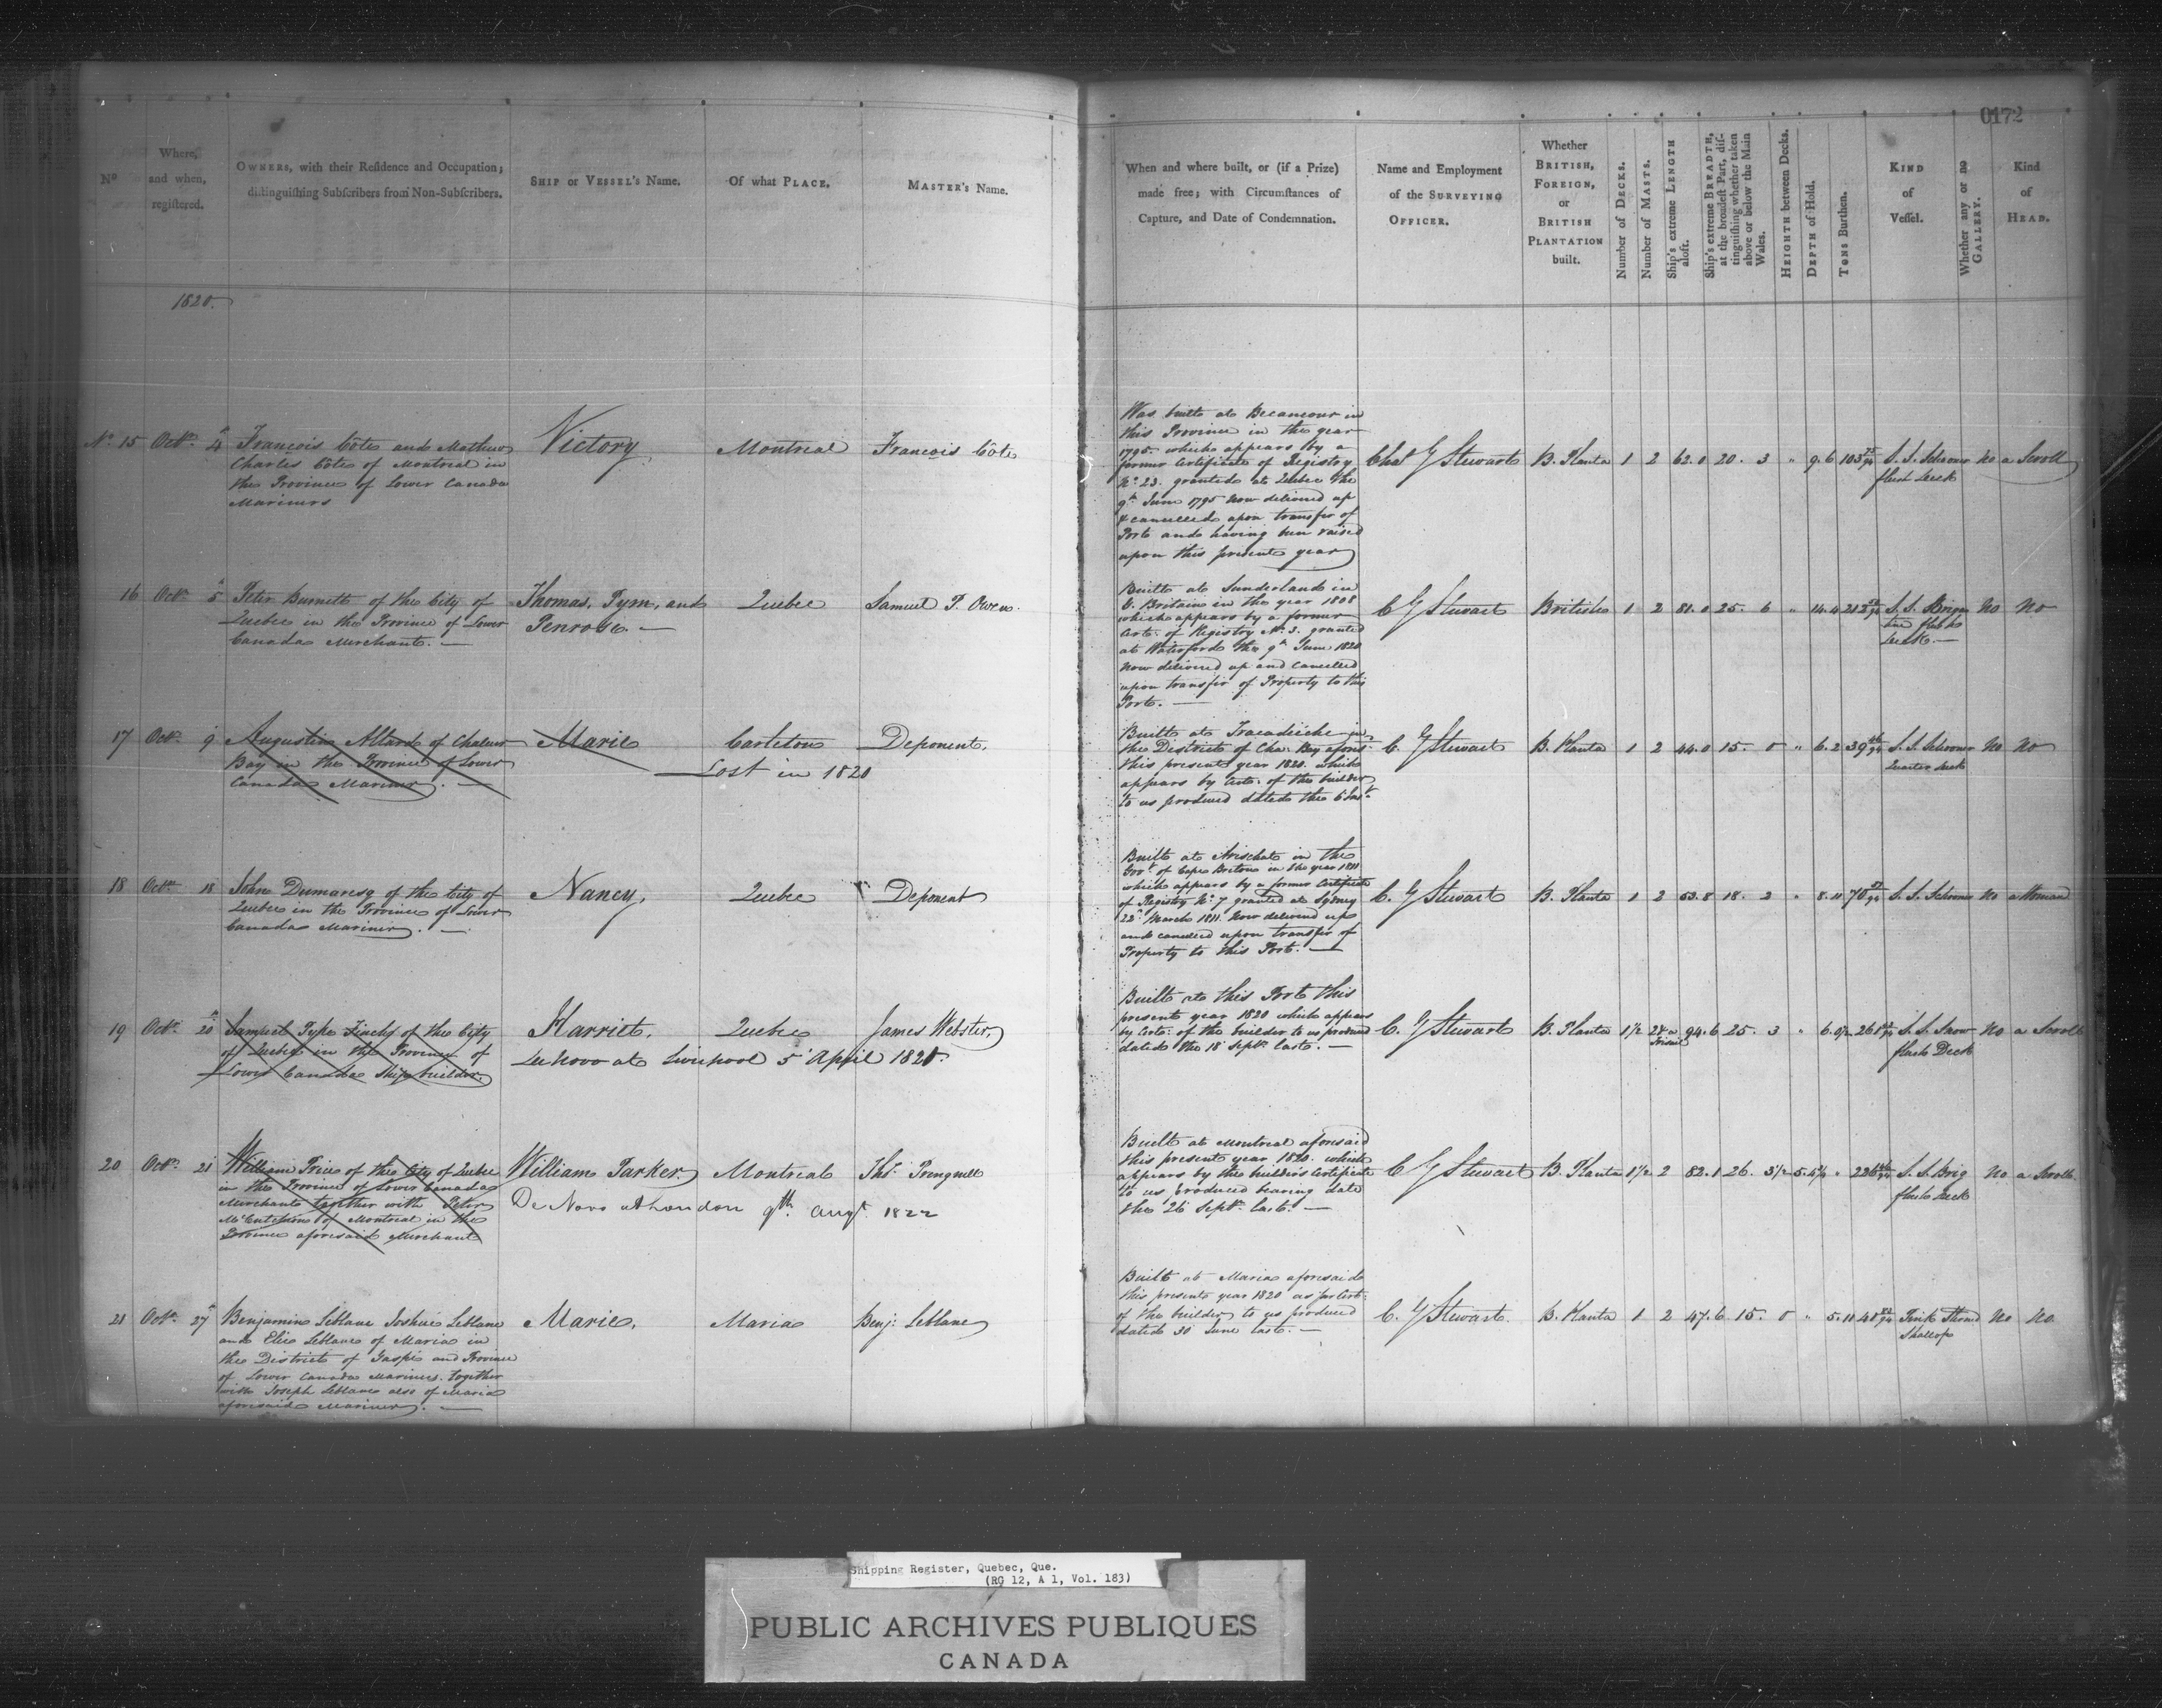 0172
No
Where,
and when,
registered.
OWNERS, with their Residence and Occupation;
distinguishing Subscribers from Non-Subscribers.
SHIP or VESSEL's Name.
Of what PLACE.
MASTER's Name.
When and where built, or (if a Prize)
made free; with Circumstances of
Capture, and Date of Condemnation.
Name and Employment
of the SURVEYING
OFFICER.
Whether
BRITISH,
FOREIGN,
or
BRITISH
PLANTATION
built.
Number of DECKS.
Number of MASTS.
Ship's extreme LENGTH
aloft.
Ship's extreme BREADTH,
at the broadest Part, dis-
tinguishing whether taken
above or below the Main
Wales.
HEIGHTH between Decks.
DEPTH of Hold.
TONS Burthen.
KIND
of
Vessel.
Whether any or no
GALLERY.
Kind
of
HEAD.
1820.
No 15 Octr 4
François Côte and Mathew
Charles Côte of Montreal in
the Province of Lower Canada
Mariners
Victory
Montreal
François Côte
Was built at Becancour in
this Province in the year
1795 which appears by a
former Certificate of Registry
No 23. granted at Quebec the
9th June 1795 now delivered up
& cancelled upon transfer of
Port and having been raised
upon this present year
Chas G Stewart
B. Planta 1 2 62.0 20. 3 " 9.6 103
S. S. Schooner
flush Deck
No a Scroll
16 Octr 5
Peter Burnett of the City of
Quebec in the Province of Lower
Canada Merchant. —
Thomas, Tym, and
Penrose. —
Quebec
Samuel T. Owen.
Built at Sunderland in
G. Britain in the year 1808
which appears by a former
Certe. of Registry No. 3. granted
at Waterford the 9th June 1820
now delivered up and Cancelled
upon transfer of Property to this
Port. —
C G Stewart
British 1 2 81.0 25. 6 " 14.4
S. S. Brigan
tine flush
Deck. —
No No
17 Octr 9
Augustin Allard of Chaleur
Bay in the Province of Lower
Canada Mariner. —
Marie
Carleton
Deponent.
Lost in 1820
Built at Tracadiche in
the District of Cha. Bay afores.
this present year 1820. which
appears by Certe. of the builder
to us produced dated the 6 Inst.
C. G Stewart
B. Planta 1 2 44.0 15. 0 " 6.2 39
S. S. Schooner
Quarter Deck
No No
18 Octr 18
John Dumaresq of the City of
Quebec in the Province of Lower
Canada Mariner. —
Nancy,
Quebec
Deponent
Built at Arischat in the
Govt of Cape Breton in the year 1811
which appears by a former Certificate
of Registry No. 7 granted at Sydney
22d March 1811. Now delivered up
and cancelled upon transfer of
Property to this Port. —
C. G Stewart
B. Planta 1 2 53.8 18. 2 " 8.11 70
S. S. Schooner No a Woman
19 Octr 20
Samuel Pyke Finchy of the City
of Quebec in the Province of
Lower Canada Shipbuilder.
Harriet.
Quebec
James Webster,
De Novo at Liverpool 5 April 1820.
Built at this Port this
present year 1820 which appears
by Certe. of the builder to us produced
dated the 18 Septr. last. —
C. G Stewart
B. Planta 1 1/2 94.6 25. 3 " 6.
S. S. Snow
flush Deck
No a Scroll
20 Octr 21
William Price of the City of Quebec
in the Province of Lower Canada
Merchant together with Peter
McCutcheon of Montreal in the
Province aforesaid Merchant
William Parker
Montreal
Thos
De Novo at London 9th Augt 1822
Built at Montreal aforesaid
this present year 1820. which
appears by the builders Certificate
to us produced bearing date
the 26 Septr. last. —
C G Stewart
B. Planta 1 1/2 2 82.1 26. 3 1/2
S. S. Brig
flush Deck
No a Scroll
21 Octr 27
Benjamin Leblanc Joshue Leblanc
and Elie Leblanc of Maria in
the District of Gaspé and Province
of Lower Canada Mariners. Together
with Joseph Leblanc also of Maria
aforesaid Mariner. —
Marie,
Maria
Benj. Leblanc
Built at Maria aforesaid
this present year 1820 as per Cert.
of the builder to us produced
dated 30 June last. —
C. G Stewart.
B. Planta 1 2 47.6 15. 0 " 5.11
Pink Sternd
Shallop
No No.
Shipping Register, Quebec, Que.
(RG 12, A 1, Vol. 183)
PUBLIC ARCHIVES PUBLIQUES
CANADA